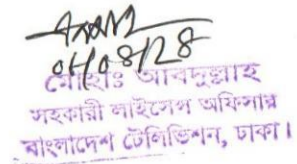 ০১/০৪/২৪
মোহাঃ আবদুল্লাহ
সহকারী লাইসেন্স অফিসার
বাংলাদেশ টেলিভিশন, ঢাকা।